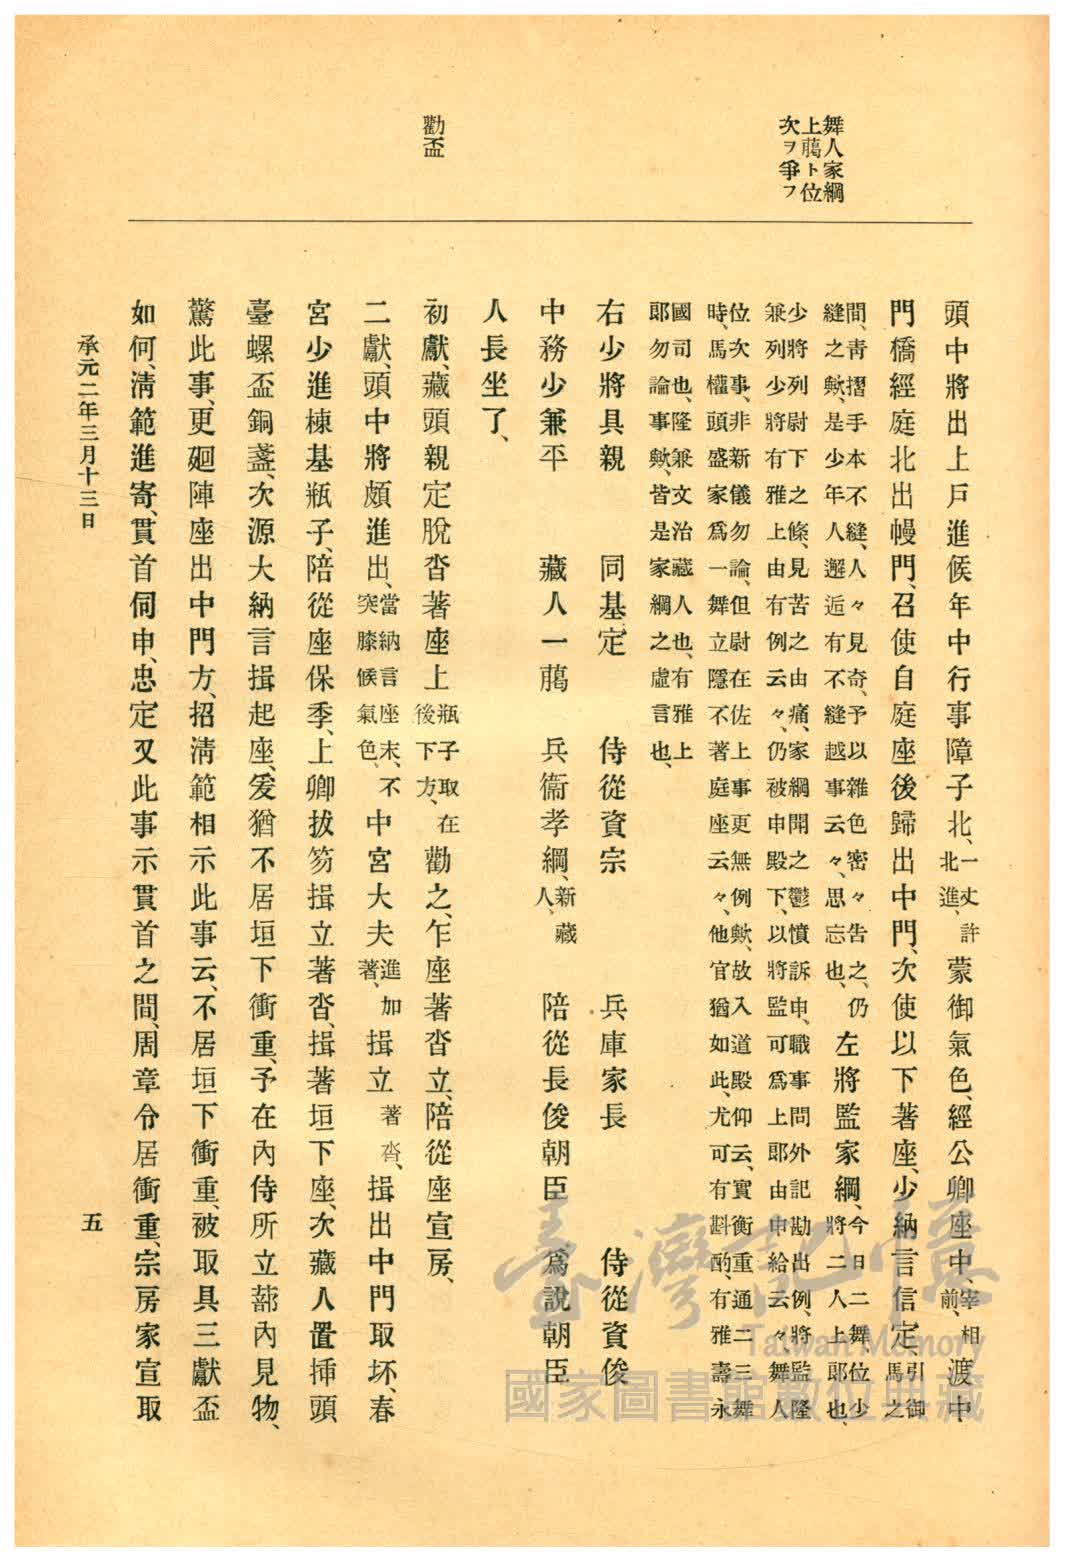 舞人家綱
上﨟ト位
次ヲ爭フ
勸盃
頭中將出上戸進候年中行事障子北、一丈許北進、蒙御氣色、經公卿座中、宰相前、渡中
門橋經庭北出幔門、召使自庭座後歸出中門、次使以下著座、少納言信定、引御馬之
間、靑摺手本不縫、人々見奇、予以雜色密々告之、仍
縫之歟、是少年人邂逅有不縫越事云々、思忘也、左將監家綱、今日二舞、位少將二人上郎也、
少將列尉下之條、見苦之由痛、家綱開之鬱憤訴申、職事問外記勘出例、將監隆
兼列少將有雅上由有例云々、仍被申殿下、以將監可爲上郎由申給云々、舞人
位次事、非新儀勿論、但尉在佐上事更無例歟、故入道殿仰云、實衡重通二三舞
時、馬權頭盛家爲一舞立隱不著庭座云々、他官猶如此、尤可有斟酌、有雅壽永
國司也、隆兼文治藏人也、有雅上
郎勿論事歟、皆是家綱之虛言也、
右少將具親　同基定　侍從資宗　兵庫家長　侍從資俊
中務少兼平　藏人一﨟　兵衞孝綱、新藏人、　陪從長俊朝臣　爲說朝臣
人長坐了、
初獻、藏頭親定脫沓著座上、瓶子取在後下方、勸之、乍座著沓立、陪從座宣房、
二獻、頭中將頗進出、當納言座末、不突膝候氣色、中宮大夫進加著、揖立著沓、揖出中門取坏、春
宮少進棟基瓶子、陪從座保季、上卿拔笏揖立著沓、揖著垣下座、次藏人置揷頭
臺螺盃銅盞、次源大納言揖起座、爰猶不居垣下衝重、予在內侍所立蔀內見物、
驚此事、更廻陣座出中門方、招淸範相示此事云、不居垣下衝重、被取具三獻盃
如何、淸範進寄、貫首伺申、忠定又此事示貫首之間、周章令居衝重、宗房家宣取
承元二年三月十三日
五
臺灣記憶
Taiwan Memory
國家圖書館數位典藏